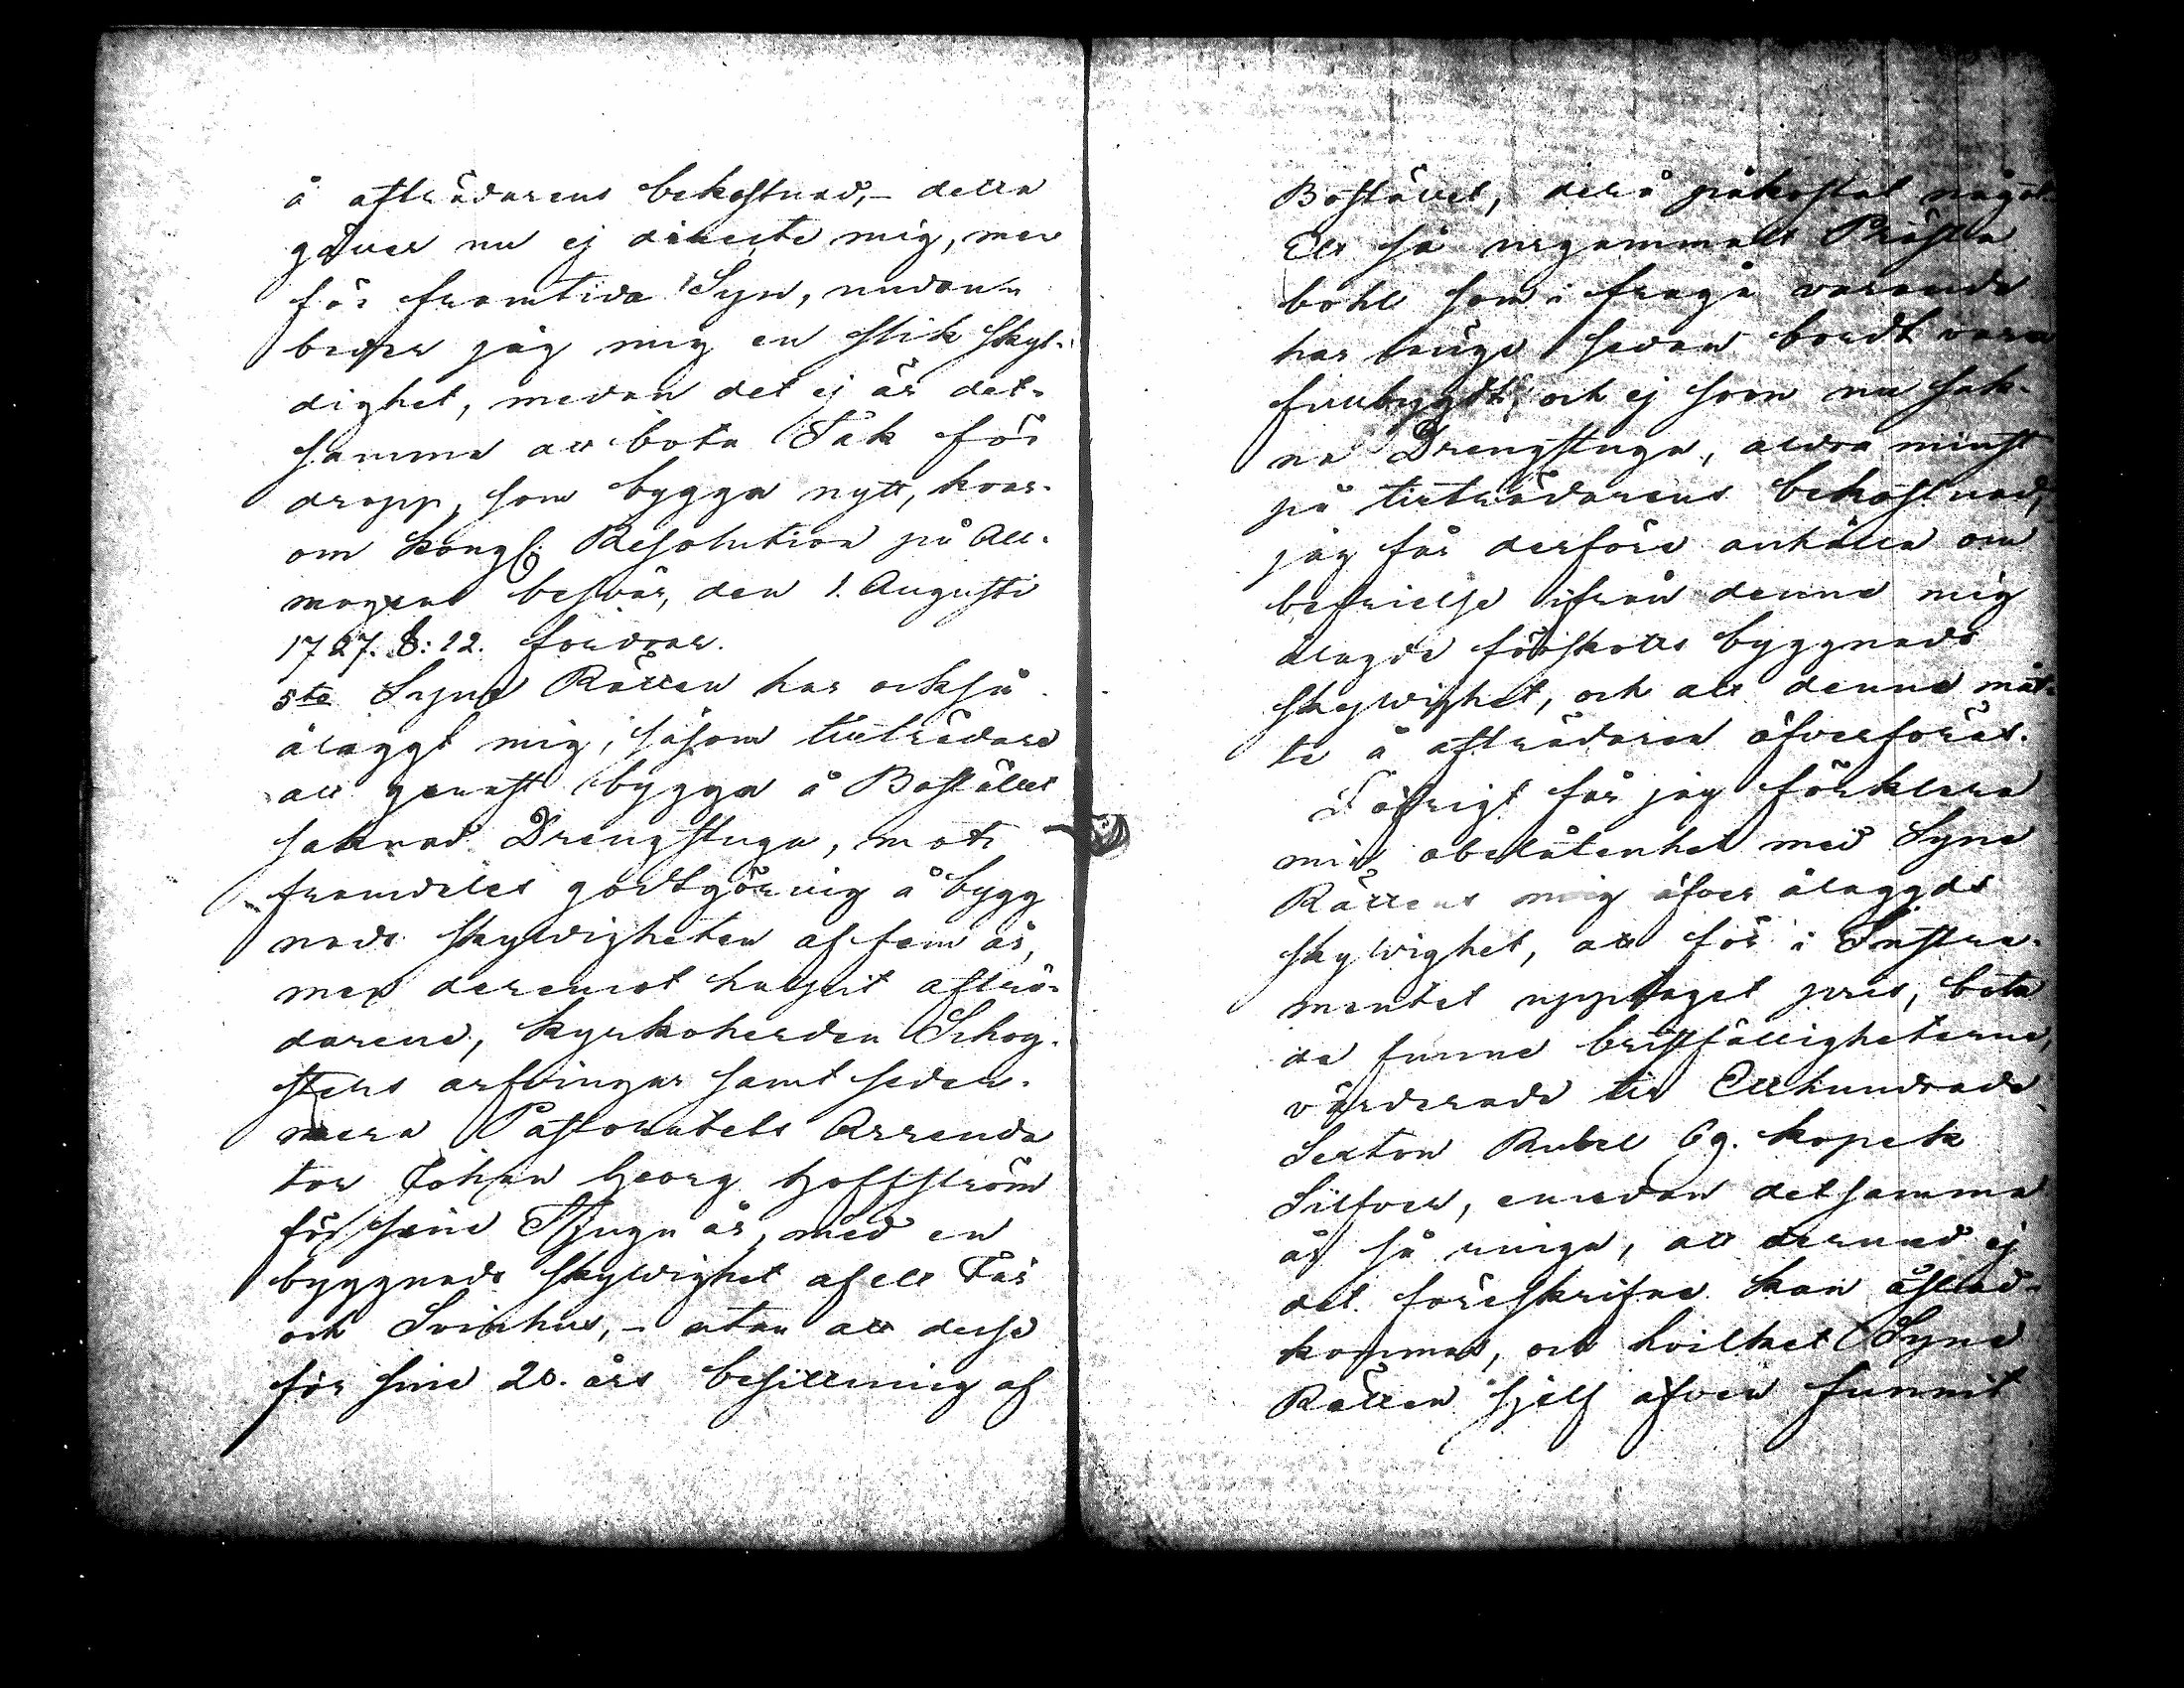 å afträdarens bekostnad, – detta
gäller nu ej directe mig, men
för framtida Syn, undan-
beder jag mig en slik skyl-
dighet, medan det ej är det-
samma att bota Tak för
dropp, som bygga nytt, hvar-
om Kongl. Resolution på All-
mogens besvär, den 1. Augusti
1727. §: 22. fordrar.
5te Syne Rätten har också
ålaggt mig, såsom tillträdare
att genast bygga å Bostället
saknad Drengstuga, mot
framdeles godtgörning å bygg
nads skyldigheten af fem år,
men deremot hulpit afträ-
darene, Kyrkoherden Schog-
sters arfvingar samt seder-
mera Pastoratets Arrenda
tor Johan Georg Hoffström
för sine Tjugu år, med en
byggnads skyldighet af ett Får
och Svinhus, – utan att desse
för sine 20. års besittning af
Bostället, derå påkostat något.
Ett så urgammalt Prästa
bohl som i fråga varande
har länge sedan bordt vara
fullbygdt, och ej som nu sak-
na Drengstuga, aldra minst
på tillträdarens bekostnad,
jag får derföre anhålla om
befrielse ifrån denne mig
ålagde förskotts byggnads
skyldighet, och att denne måt-
te å afträdaren öfverföras.
I öfrigt får jag förklara
min obelåtenhet med Syne
Rättens mig öfver ålaggde
skyldighet, att för i Instru-
mentet upptaget pris, bota
de funne bristfälligheterne,
värderade till Etthundrade
Sexton Rubel 69. Kopek
Silfver, emedan detsamma
är så ringa, att dermed ej
det föreskrifne kan åstad-
kommas, och hvilket Syne
Rätten sjelf äfven funnit